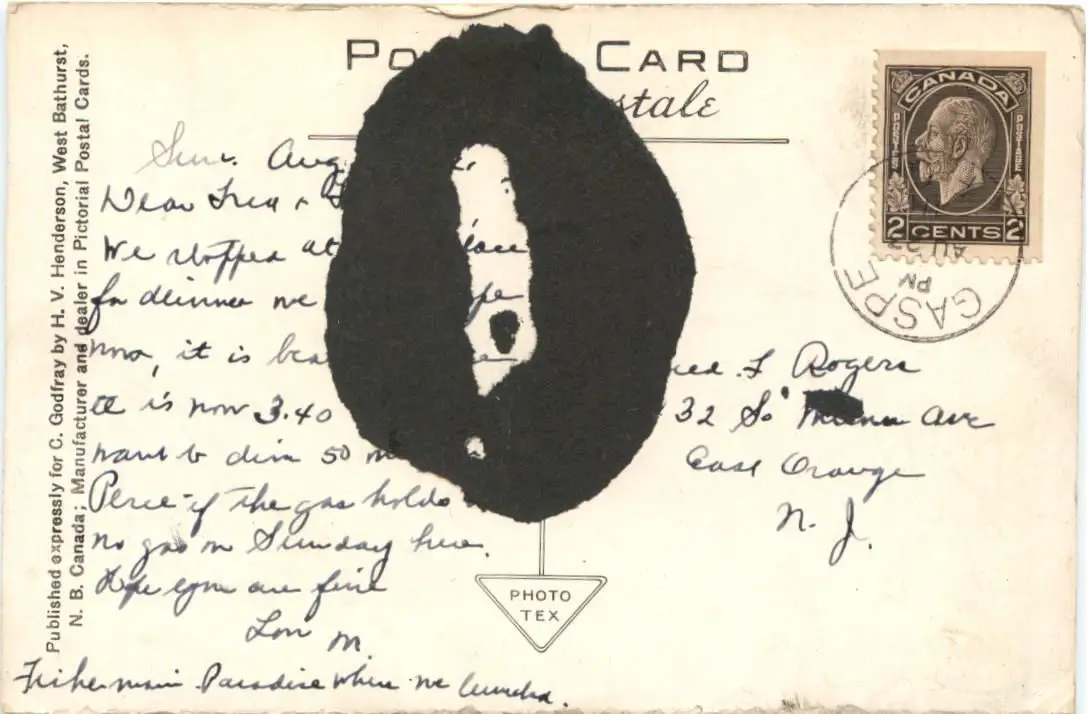 Published expressly for C. Godfray by H. V. Henderson, West Bathurst,
N. B. Canada; Manufacturer and dealer in Pictorial Postal Cards.
CARD
CANADA
POSTES POSTAGE
2 CENTS 2
GASPE
PM
Sun. Aug
Dear Fred &
We stopped at
for dinner we
now, it is
It is now 3.40
want to driv 50
Perce - if the gas holds
no gas on Sunday here.
Hope you are fine
Lou M.
Fisherman Paradise where we lunched.
F Rogers
32 So Ave
East Orange
N. J.
PHOTO
TEX